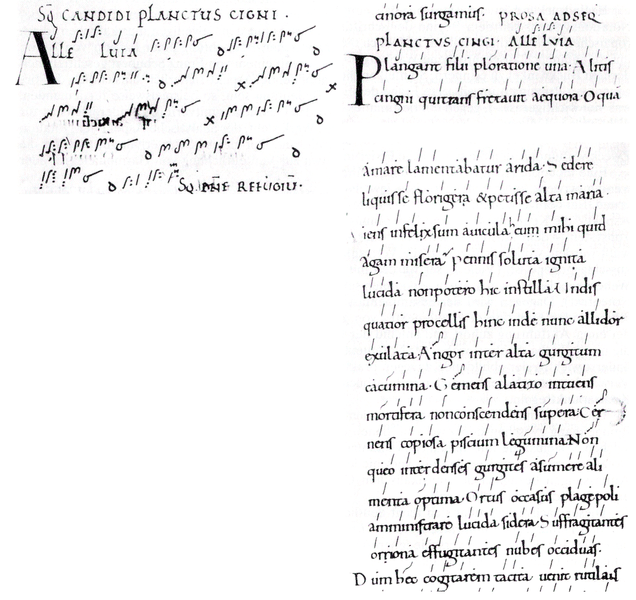 Sq CANDIDI PLANCTUS CIGNI.
Alle luia
Sq
cinora surgamus. PROSA AD SEQ
PLANCTVS CINGI. Alle luia
Plangant filii ploratione una. Alitis
cingni qui trans fretauit aequora. O qua
amare lamentabatur arida. Sedere
liquisse florigera & petisse alta maria.
iens infelix sum auicula cum mihi quid
agam misera Pennis soluta ignita
lucida non potero hic instilla Undis
quatior procellis hinc inde nunc allidor
exulata Angor inter alta gurgitum
cacumina. Gemens alatizo intuens
mortifera non conscendens supera Cer
nens copiosa piscium legumina Non
queo inter denses gurgites asumere ali
menta optima. Ortus occasus plage poli
amministrate lucida sidera Suffragitantes
oriona effugitantes nubes occiduas.
Dum hec cogitarem tacita uenit rutilans